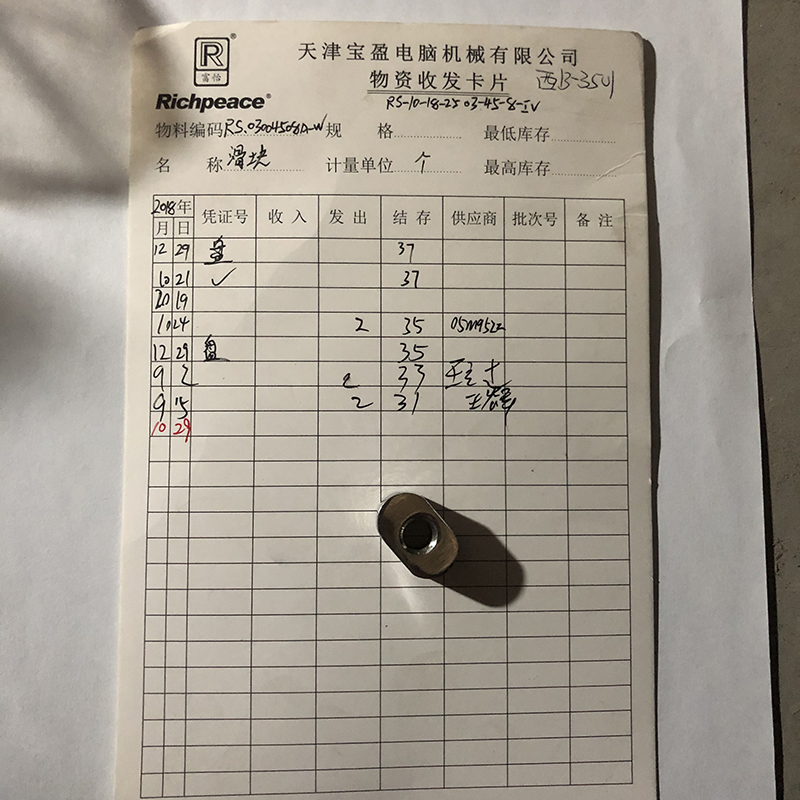 R®
富怡
Richpeace®
天津宝盈电脑机械有限公司
物资收发卡片 西B-3501
RS-10-18-25 03-45-8-IV
物料编码 RS.03004508A-W 规 格 最低库存
名 称 滑块 计量单位 个 最高库存
2018年 凭证号 收入 发出 结存 供应商 批次号 备注
月 日
12 29 盘 37
10 21 ✓ 37
20 19
10 24 2 35
12 29 盘 35
9 2 2 33
9 15 2 31
10 29